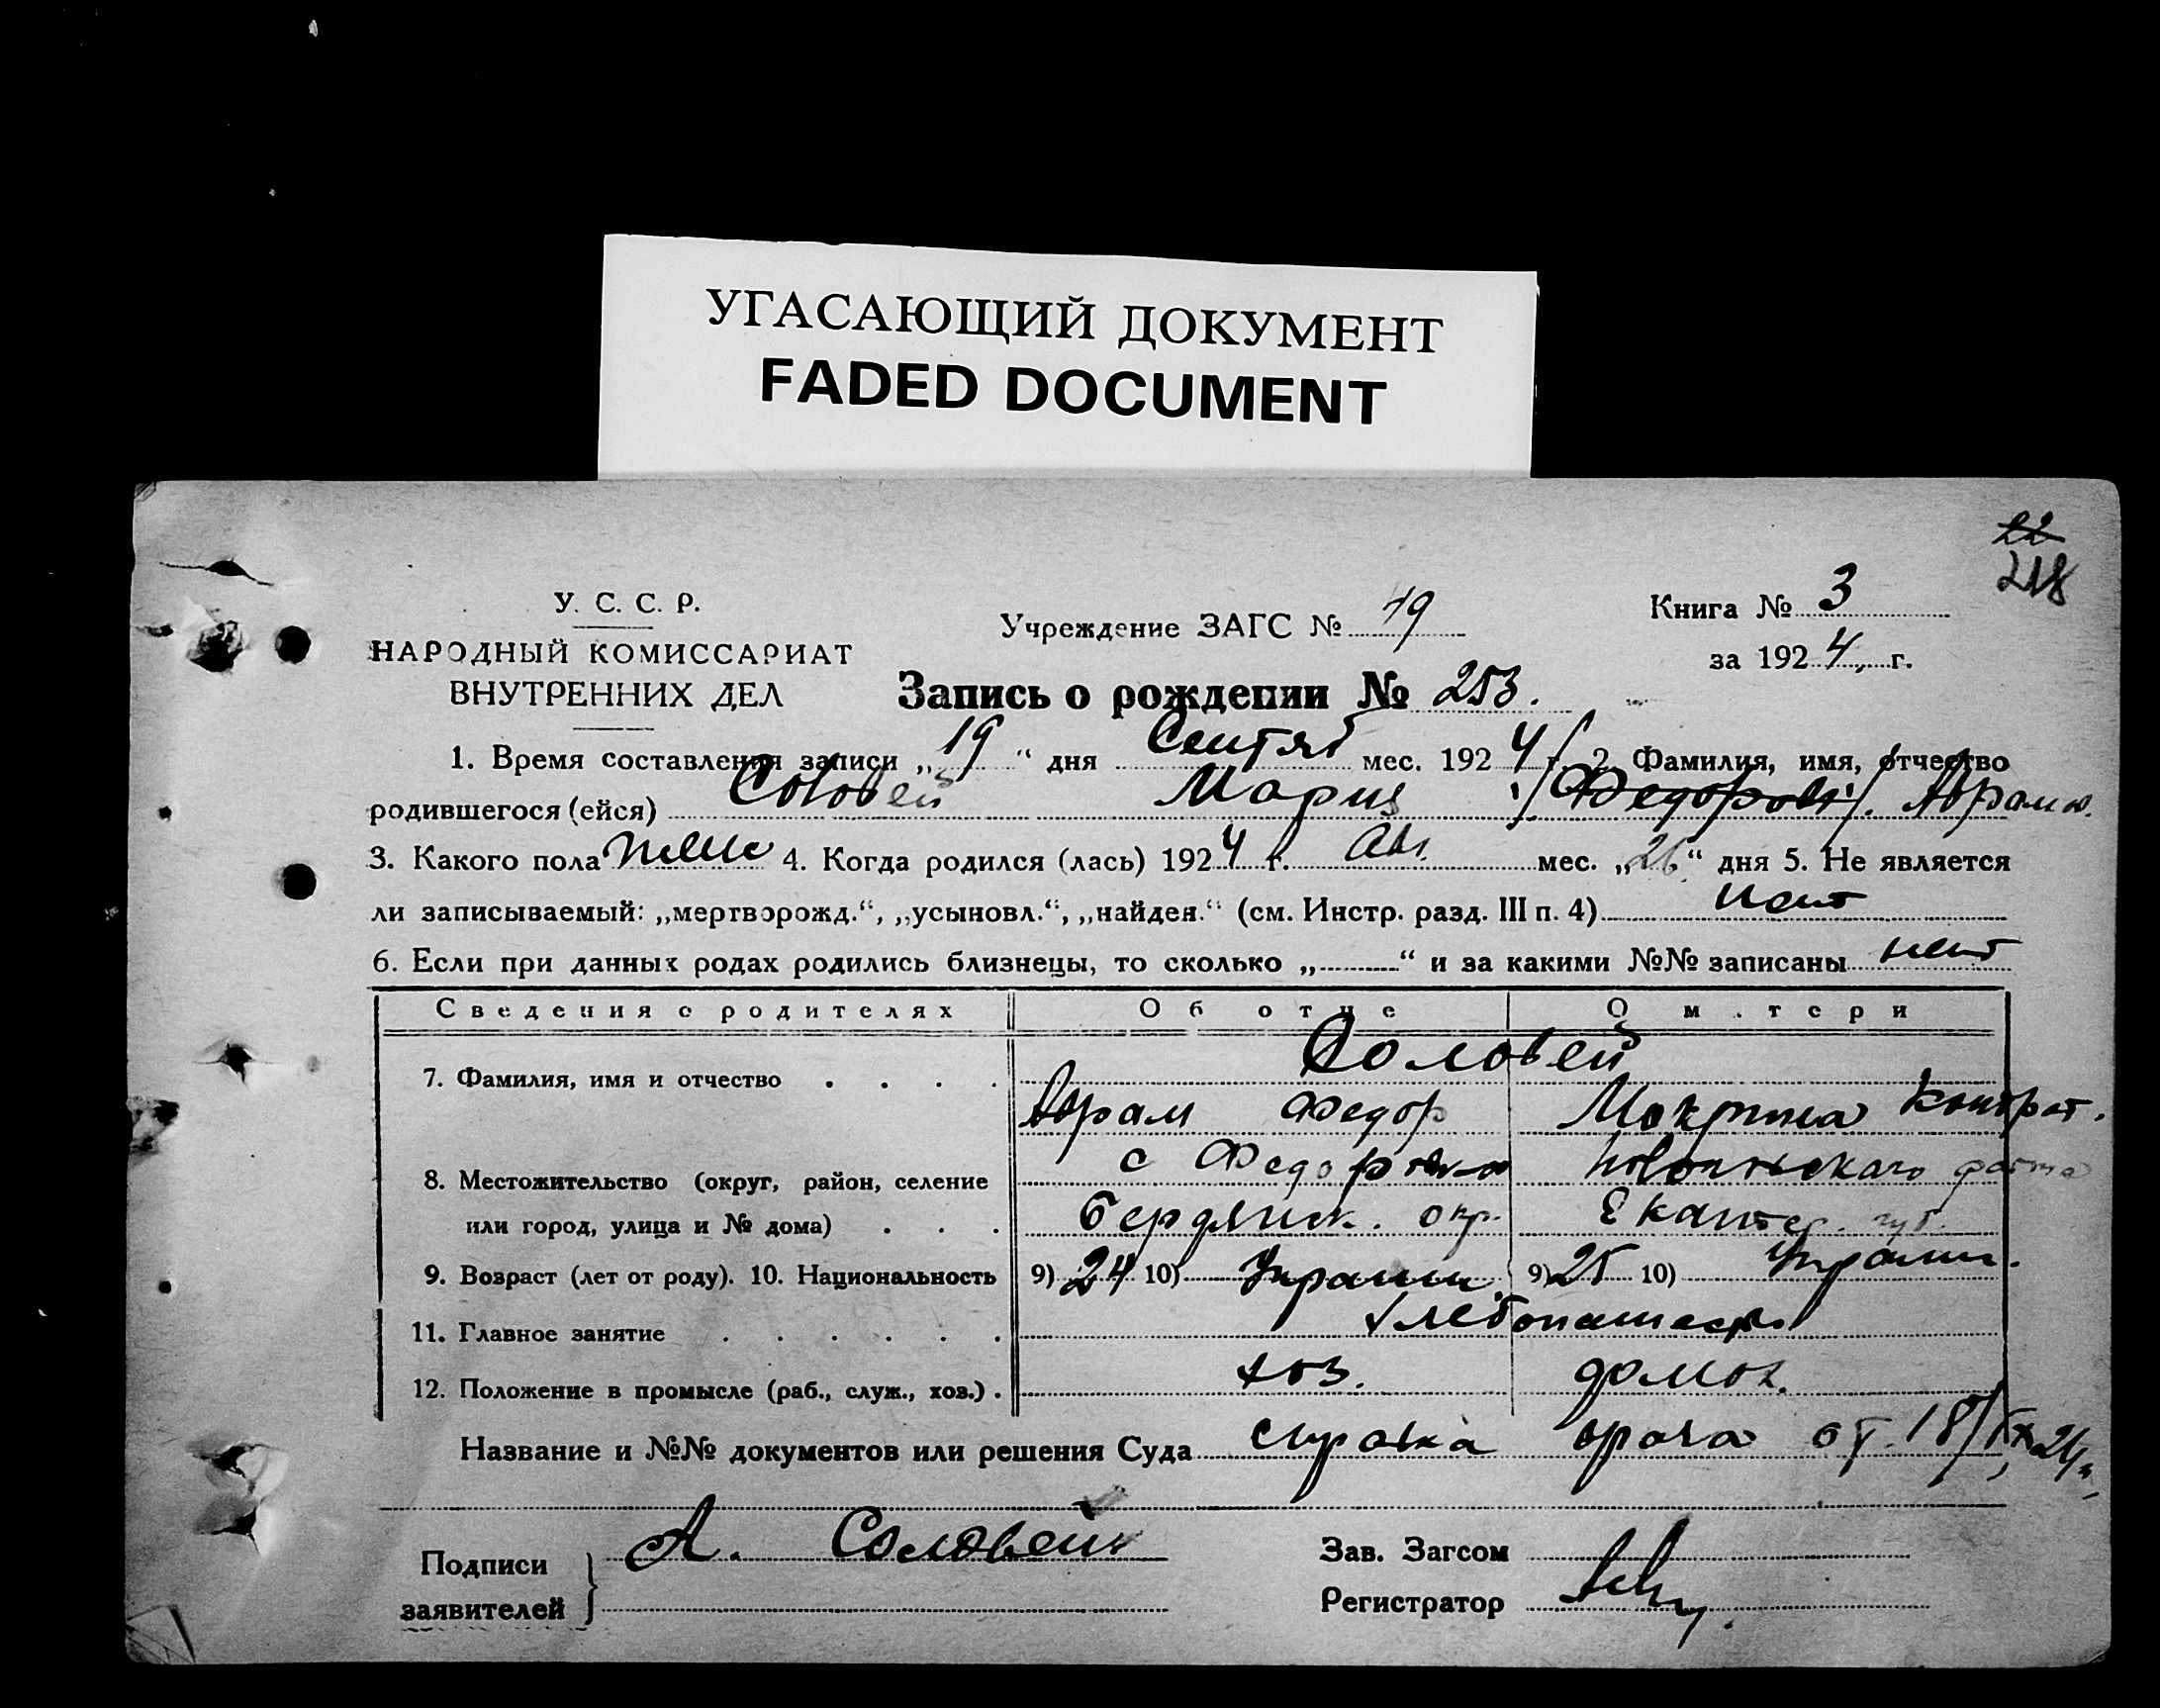 УГАСАЮЩИЙ ДОКУМЕНТ
FADED DOCUMENT
22
218
У. С. С. Р.
НАРОДНЫЙ КОМИССАРИАТ
ВНУТРЕННИХ ДЕЛ
Учреждение ЗАГС № 19
Книга № 3
за 1924 г.
Запись о рождении № 253.
1. Время составления записи „19“ дня Сентяб мес. 1924 г. 2. Фамилия, имя, отчество
родившегося (ейся) Соловей Мария /Федоров/. Аврам
3. Какого пола женс 4. Когда родился (лась) 1924 г. Авг. мес. „26“ дня 5. Не является
ли записываемый: „мертворожд.“, „усыновл.“, „найден.“ (см. Инстр. разд. III п. 4) нет
6. Если при данных родах родились близнецы, то сколько „ “ и за какими №№ записаны нет
Сведения о родителях Об отце О матери
7. Фамилия, имя и отчество Соловей
Аврам Федор Мокрина Кондрат.
8. Местожительство (округ, район, селение с Федоровка
или город, улица и № дома) Бердянск. окр. Екатер. губ.
9. Возраст (лет от роду). 10. Национальность 9) 24 10) Украин. 9) 25 10) Украин.
11. Главное занятие хлебопашество
12. Положение в промысле (раб., служ., хоз.) хоз. домох.
Название и №№ документов или решения Суда справка врача от 18/IX 24
Подписи
заявителей
А. Соловей
Зав. Загсом
Регистратор